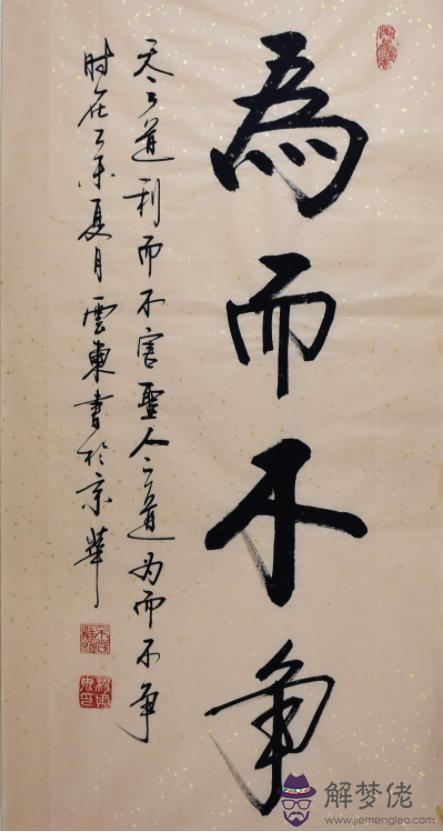 為而不争
天之道利而不害聖人之道为而不争
时在乙未夏月雲東書於京華
解梦佬
www.jiemenglao.com